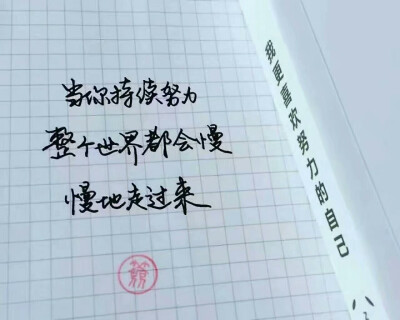 当你持续努力
整个世界都会慢
慢地走过来
我更喜欢努力的自己